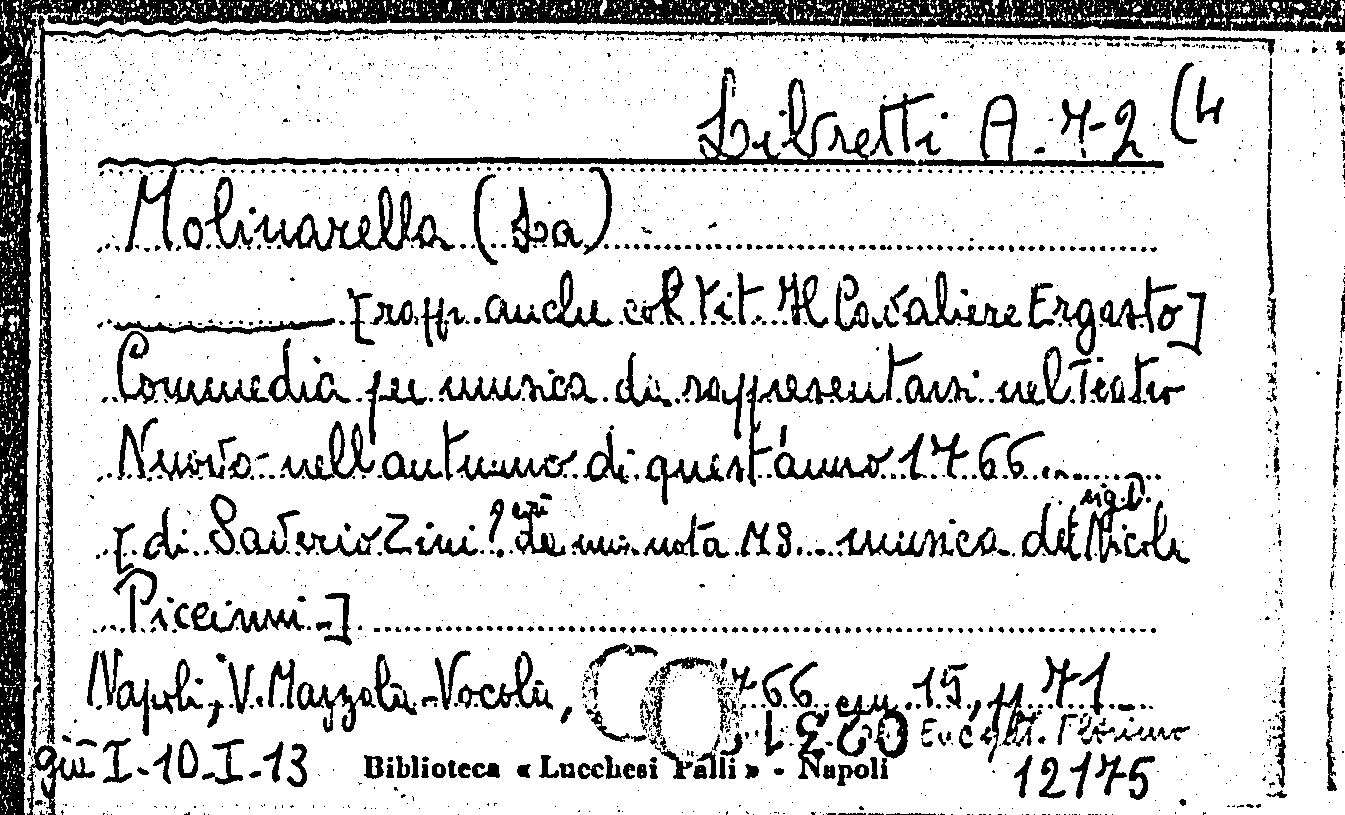 Libretti A. 7-2 (4
Molinarella (La)
[rappr. anche col tit. Il Cavaliere Ergasto]
Commedia per musica da rappresentarsi nel Teatro
Nuovo nell'autunno di quest'anno 1766...
sig. D.
[di Saverio Zini? così da una nota MS. musica del Nicola
Piccinni.]
Napoli, V. Mazzola-Vocola, 1766 cm. 15, pp. 71
Florimo
già I-10-I-13 Biblioteca « Lucchesi Palli » - Napoli 12175